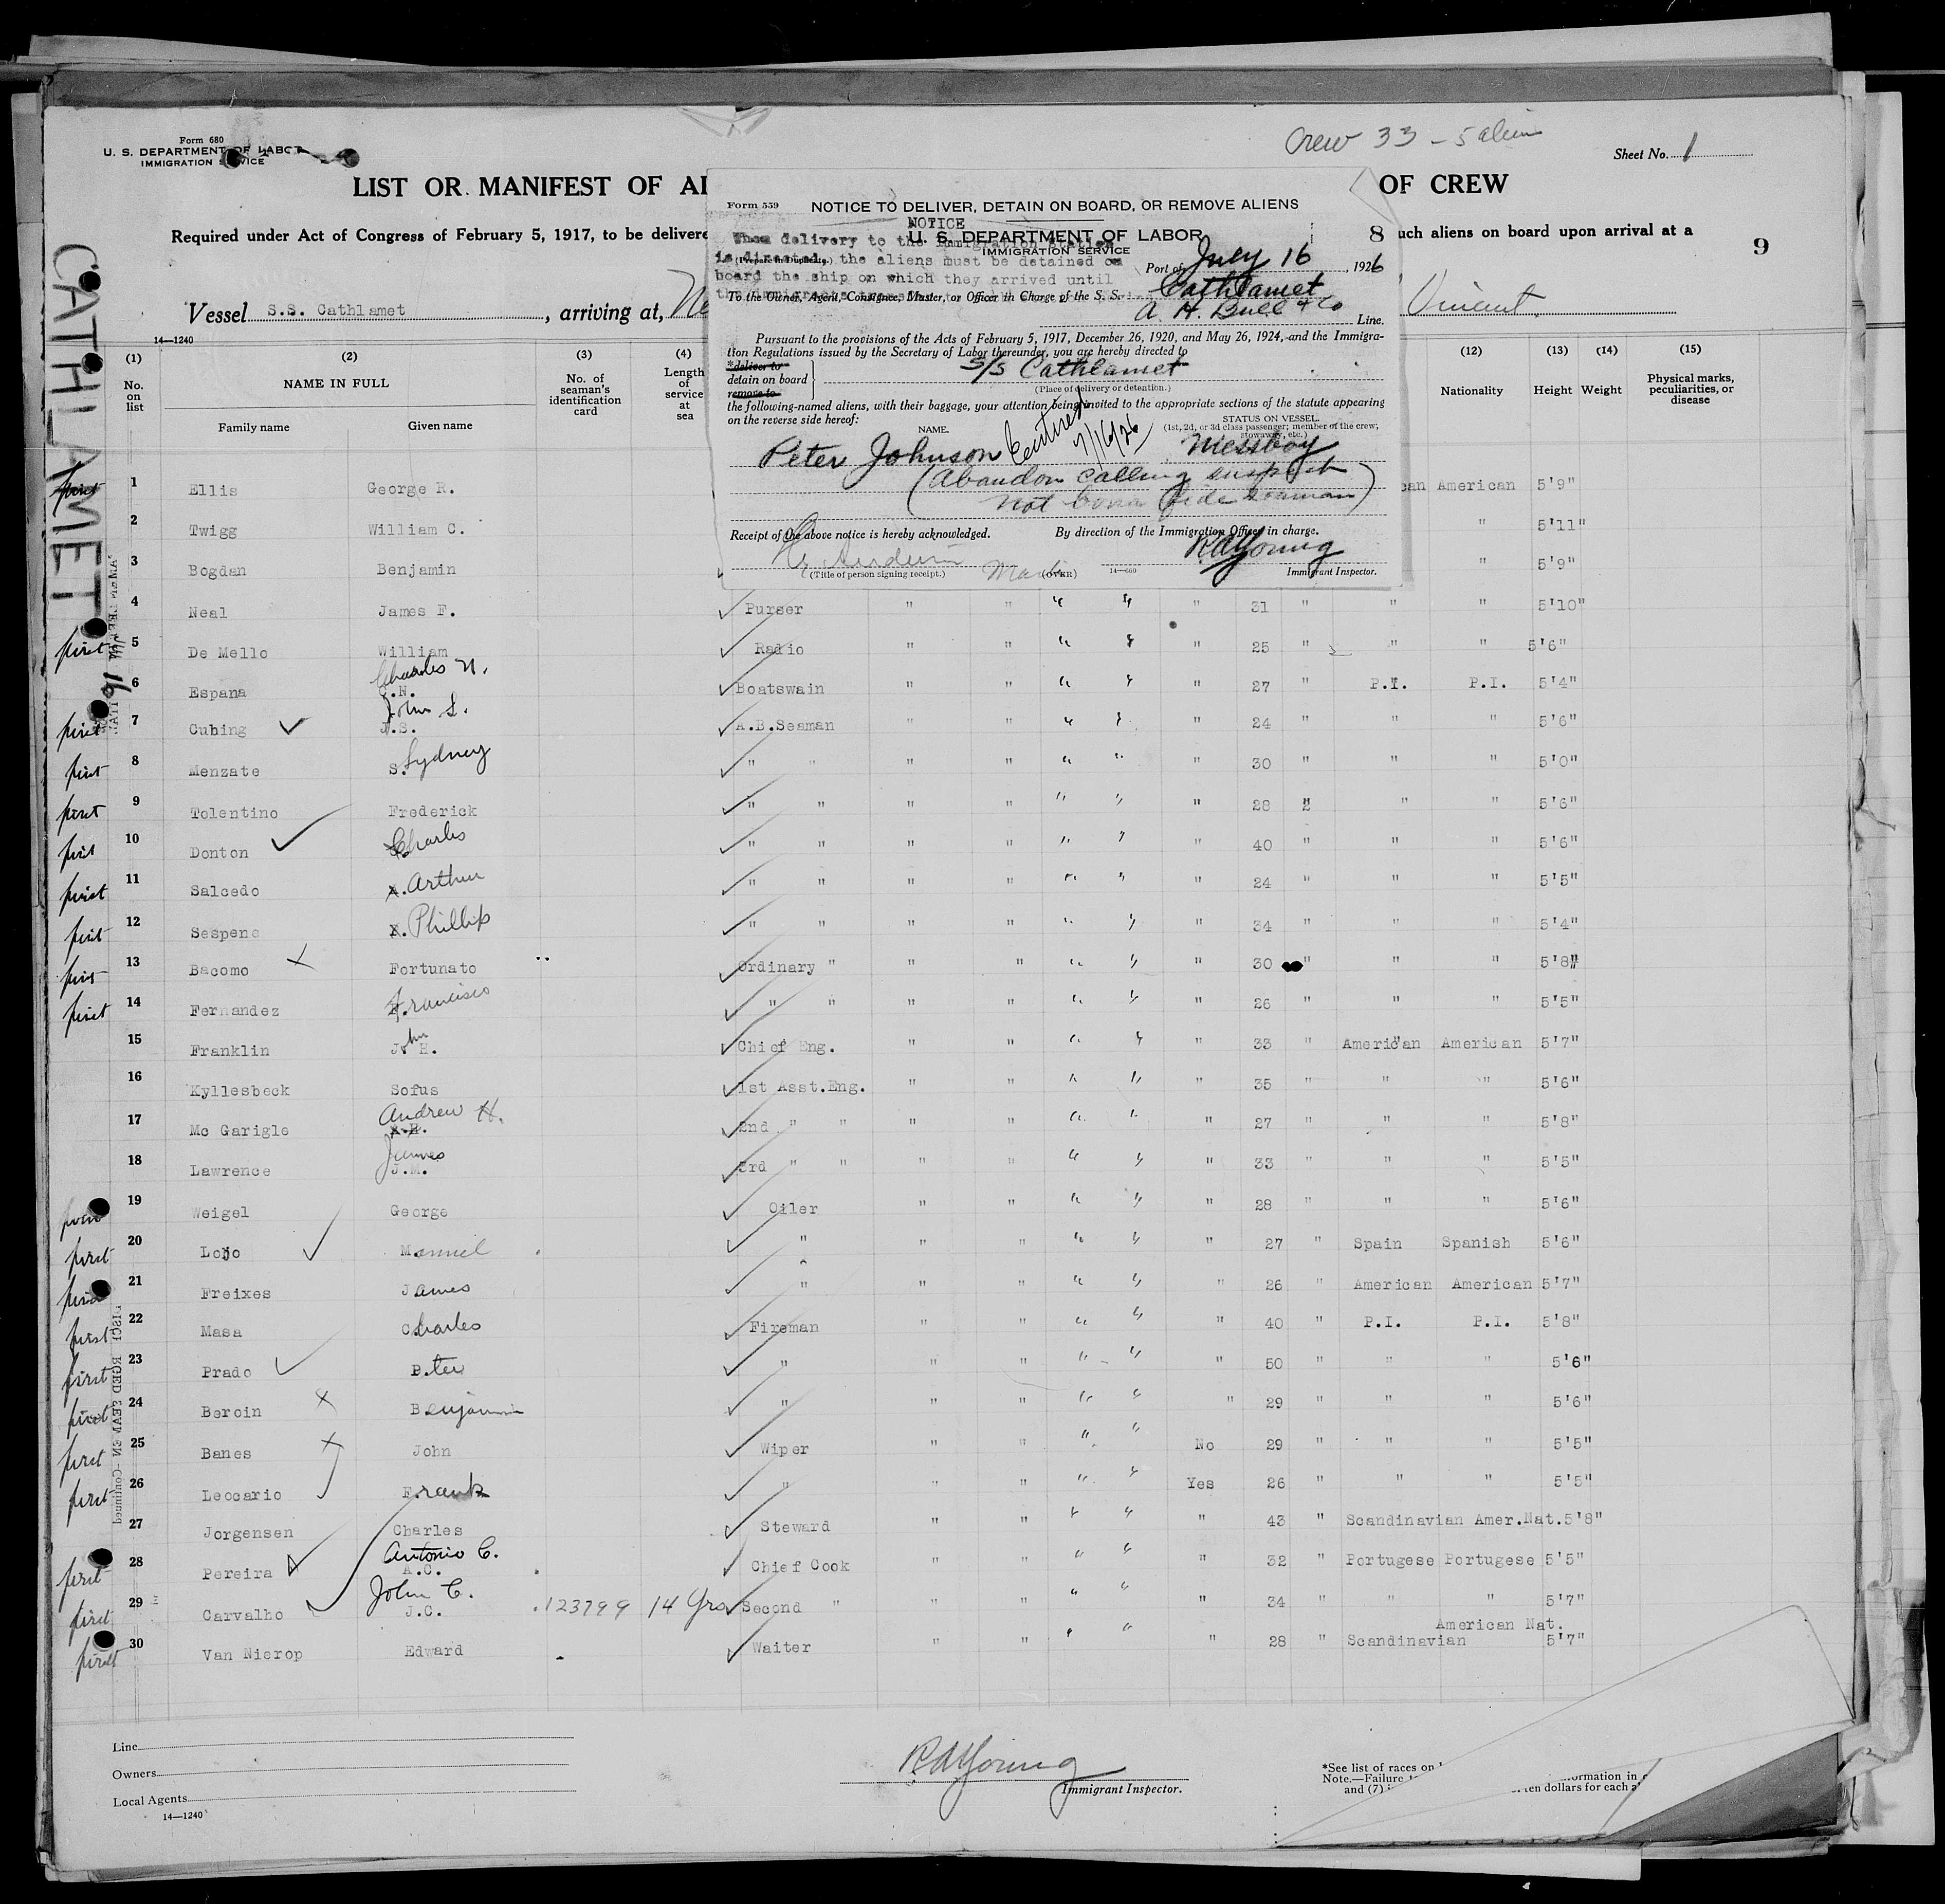 Form 680
U. S. DEPARTMENT OF LABOR
IMMIGRATION SERVICE
Crew 33 - 5 alien
Sheet No. 1
LIST OR MANIFEST OF AL
OF CREW
Required under Act of Congress of February 5, 1917, to be delivere
uch aliens on board upon arrival at a
8
9
CATHLAMET
Vessel S.S. Cathlamet, arriving at, Ne
Vincent
14—1240
Form 559 NOTICE TO DELIVER, DETAIN ON BOARD, OR REMOVE ALIENS
NOTICE
U. S. DEPARTMENT OF LABOR
IMMIGRATION SERVICE
When delivery to the Immigration Station
is directed, the aliens must be detained on
board the ship on which they arrived until
Port of July 16, 1926
To the Owner, Agent, Consignee, Master, or Officer in Charge of the S. S. Cathlamet
A. H. Bull & Co Line.
Pursuant to the provisions of the Acts of February 5, 1917, December 26, 1920, and May 26, 1924, and the Immigra-
tion Regulations issued by the Secretary of Labor thereunder, you are hereby directed to
*deliver to
detain on board
remove to
S/S Cathlamet
(Place of delivery or detention.)
the following-named aliens, with their baggage, your attention being invited to the appropriate sections of the statute appearing
on the reverse side hereof:
NAME.
STATUS ON VESSEL.
(1st, 2d, or 3d class passenger; member of the crew;
stowaway, etc.)
Peter Johnson 7/16/26 Messboy
(Abandon calling suspect
not bona fide seaman)
Receipt of the above notice is hereby acknowledged. By direction of the Immigration Officer in charge.
R A Young
(Title of person signing receipt.) (OVER) 14—660 Immigrant Inspector.
(1) (2) (3) (4) (12) (13) (14) (15)
No. on list NAME IN FULL No. of seaman's identification card Length of service at sea Nationality Height Weight Physical marks, peculiarities, or disease
Family name Given name
1 Ellis George R. can American 5'9"
2 Twigg William C. " 5'11"
3 Bogdan Benjamin " 5'9"
4 Neal James F. Purser " " " " " 31 " " " 5'10"
first 5 De Mello William Radio " " " " " 25 " " " 5'6"
6 Espana Charles N. C.N. Boatswain " " " " " 27 " P.I. P.I. 5'4"
first 7 Cubing John S. J.S. A.B.Seaman " " " " " 24 " " " 5'6"
first 8 Menzate S. Sydney " " " " " " " 30 " " " 5'0"
first 9 Tolentino Frederick " " " " " " " 28 " " " 5'6"
first 10 Donton Charles " " " " " " " 40 " " " 5'6"
first 11 Salcedo A. Arthur " " " " " " " 24 " " " 5'5"
first 12 Sespene Phillip " " " " " " " 34 " " " 5'4"
first 13 Bacomo Fortunato Ordinary " " " " " " 30 " " " 5'8"
first 14 Fernandez Francisco " " " " " " " 26 " " " 5'5"
15 Franklin John H. Chief Eng. " " " " " 33 " American American 5'7"
16 Kyllesbeck Sofus 1st Asst.Eng. " " " " " 35 " " " 5'6"
17 Mc Garigle Andrew H. A.H. 2nd " " " " " " " 27 " " " 5'8"
18 Lawrence James J.M. 3rd " " " " " " " 33 " " " 5'5"
first 19 Weigel George Oiler " " " " " 28 " " " 5'6"
first 20 Lobo Manuel " " " " " " 27 " Spain Spanish 5'6"
first 21 Freixes James " " " " " " 26 " American American 5'7"
first 22 Masa Charles Fireman " " " " " 40 " P.I. P.I. 5'8"
first 23 Prado Peter " " " " " " 50 " " " 5'6"
first 24 Beroin Benjamin " " " " " " 29 " " " 5'6"
first 25 Banes John Wiper " " " " No 29 " " " 5'5"
first 26 Leocario Frank " " " " " Yes 26 " " " 5'5"
27 Jorgensen Charles Steward " " " " " 43 " Scandinavian Amer.Nat. 5'8"
first 28 Pereira Antonio C. A.C. Chief Cook " " " " " 32 " Portugese Portugese 5'5"
first 29 Carvalho John C. J.C. 123799 14 Yrs Second " " " " " " 34 " " " 5'7"
first 30 Van Nierop Edward Waiter " " " " " 28 " Scandinavian American Nat. 5'7"
Line
Owners
Local Agents
14—1240
R A Young
Immigrant Inspector.
*See list of races on
Note.—Failure
and (7)
ormation in
ten dollars for each